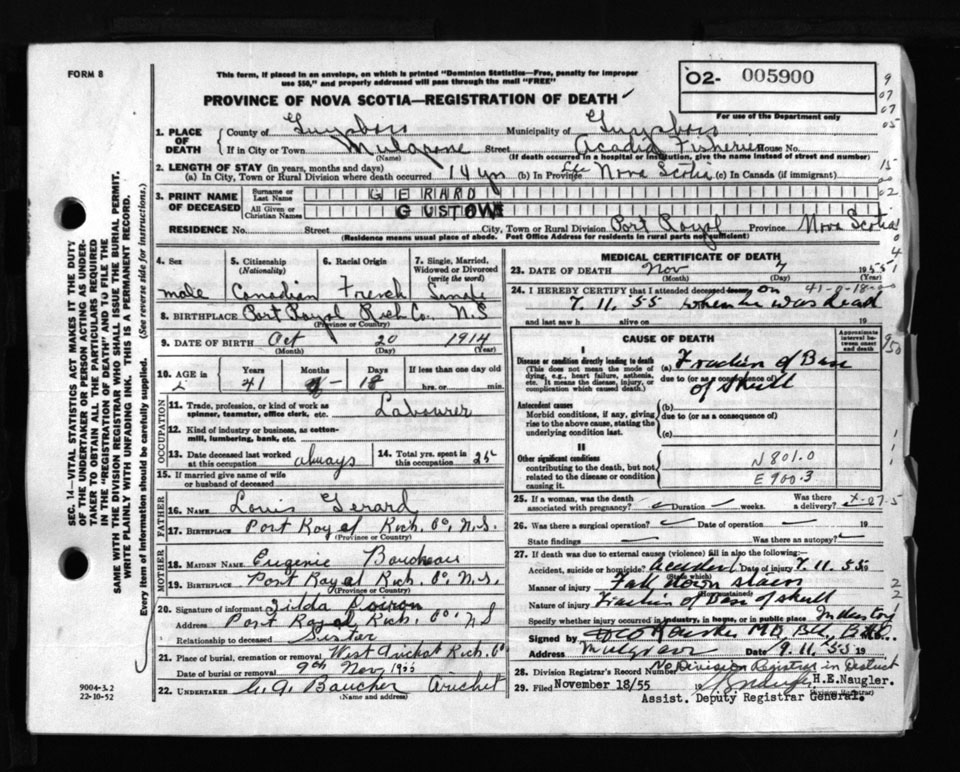 FORM 8
This form, if placed in an envelope, on which is printed "Dominion Statistics—Free, penalty for improper
use $50," and properly addressed will pass through the mail "FREE"
PROVINCE OF NOVA SCOTIA—REGISTRATION OF DEATH
02- 005900
For use of the Department only
1. PLACE OF DEATH
County of Guysboro Municipality of Guysboro
If in City or Town Mulgrave (Name) Street Acadia Fisheries House No.
(If death occurred in a hospital or institution, give the name instead of street and number)
2. LENGTH OF STAY (in years, months and days)
(a) In City, Town or Rural Division where death occurred 14 yrs (b) In Province Life Nova Scotia (c) In Canada (if immigrant)
3. PRINT NAME OF DECEASED
Surname or Last Name GERARD
All Given or Christian Names GUSTOW
RESIDENCE No. Street City, Town or Rural Division Port Royal Province Nova Scotia
(Residence means usual place of abode. Post Office Address for residents in rural parts not sufficient)
4. Sex male
5. Citizenship (Nationality) Canadian
6. Racial Origin French
7. Single, Married, Widowed or Divorced (write the word) Single
8. BIRTHPLACE Port Royal Rich. Co., N.S
(Province or Country)
9. DATE OF BIRTH Oct 20 1914
(Month) (Day) (Year)
10. AGE in Years 41 Months - Days 18 If less than one day old hrs. or min.
OCCUPATION
11. Trade, profession, or kind of work as spinner, teamster, office clerk, etc. Labourer
12. Kind of industry or business, as cotton-mill, lumbering, bank, etc.
13. Date deceased last worked at this occupation always
14. Total yrs. spent in this occupation 25
15. If married give name of wife or husband of deceased
FATHER
16. NAME Louis Gerard
17. BIRTHPLACE Port Royal Rich. Co. N.S.
(Province or Country)
MOTHER
18. MAIDEN NAME Eugenie
19. BIRTHPLACE Port Royal Rich. Co. N.S.
(Province or Country)
20. Signature of informant Zilda Poiron
Address Port Royal Rich. Co. N S
Relationship to deceased Sister
21. Place of burial, cremation or removal West Arichat Rich. Co
Date of burial or removal 9th Nov 1955
22. UNDERTAKER Boucher Arichat
(Name and address)
MEDICAL CERTIFICATE OF DEATH
23. DATE OF DEATH Nov 7 1955
(Month) (Day) (Year)
24. I HEREBY CERTIFY that I attended deceased on 41-0-18
7.11.'55 when he was dead
and last saw h alive on 19
CAUSE OF DEATH
Approximate interval between onset and death
I
Disease or condition directly leading to death
(This does not mean the mode of dying, e.g., heart failure, asthenia, etc. It means the disease, injury, or complication which caused death.)
(a) Fraction of Base of Skull
due to (or as a consequence of)
Antecedent causes
Morbid conditions, if any, giving rise to the above cause, stating the underlying condition last.
(b)
due to (or as a consequence of)
(c)
II
Other significant conditions
contributing to the death, but not related to the disease or condition causing it.
N 801.0
E 900.3
25. If a woman, was the death associated with pregnancy? Duration weeks. Was there a delivery? X-27-5
26. Was there a surgical operation? Date of operation 19
State findings Was there an autopsy?
27. If death was due to external causes (violence) fill in also the following:—
Accident, suicide or homicide? Accident Date of injury 7.11.55
(State which)
Manner of injury Fall down stairs
(How sustained)
Nature of injury Fraction of Base of skull
Specify whether injury occurred in industry, in home, or in public place Industry
Signed by MD
Address Mulgrave Date 9.11.'55 19
28. Division Registrar's Record Number No Division Registrar in District
29. Filed November 18/55 19 H.E.Naugler.
(Division Registrar)
Assist. Deputy Registrar General.
SEC. 14—VITAL STATISTICS ACT MAKES IT THE DUTY OF THE UNDERTAKER OR PERSON ACTING AS UNDERTAKER TO OBTAIN ALL THE PARTICULARS REQUIRED IN THE "REGISTRATION OF DEATH" AND TO FILE THE SAME WITH THE DIVISION REGISTRAR WHO SHALL ISSUE THE BURIAL PERMIT.
WRITE PLAINLY WITH UNFADING INK. THIS IS A PERMANENT RECORD.
Every item of information should be carefully supplied. (See reverse side for instructions.)
9004-3.2
22-10-52